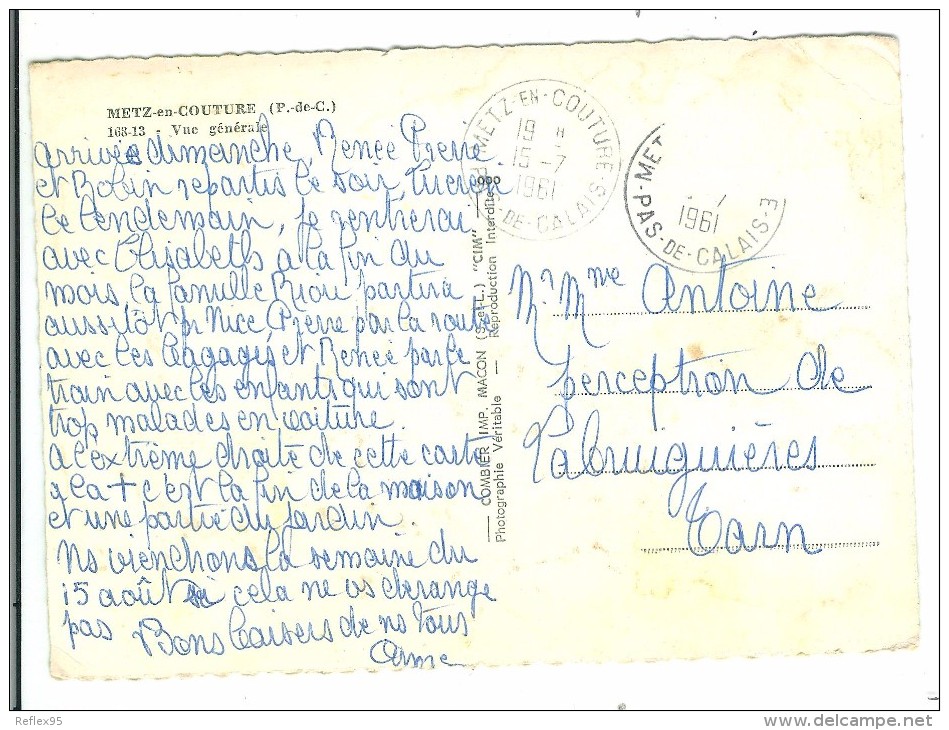 METZ-en-COUTURE (P.-de-C.)
168-13 - Vue générale
arrivée dimanche, Renée Pierre
et Robin repartis le soir, Lucien
le lendemain, je rentrerai
avec Elisabeth à la fin du
mois, la famille Riou partira
aussitôt pr Nice, Pierre par la route
avec les bagages et Renée par le
train avec les enfants qui sont
trop malades en voiture.
a l'extrême droite de cette carte
y la + c'est la fin de la maison
et une partie du jardin.
Ns viendrons la semaine du
15 août si cela ne vs dérange
pas Bons baisers de ns tous
COMBIER IMP. MACON (S.-et-L.) "CIM"
Photographie Véritable — Reproduction Interdite
METZ-EN-COUTURE
19 H
15-7
1961
PAS-DE-CALAIS
MET
1961
PAS-DE-CALAIS
Mr Mme Antoine
perception de
Labruiguières
Tarn
Reflex95
www.delcampe.net